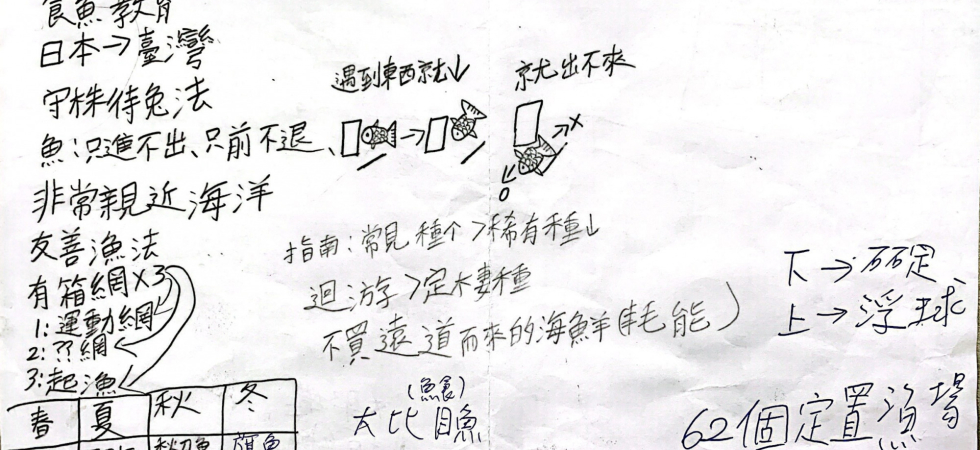 食魚教育
日本→臺灣
守株待兔法
魚:只進不出、只前不退、
遇到東西就↓
就出不來
x
o
非常親近海洋
友善漁法
有箱網x3
1:運動網
2:??網
3:起漁
指南:常見種↑>稀有種↓
迴游>定棲種
不買遠道而來的海鮮(耗能)
下→
上→浮球
春 夏 秋 冬
秋刀魚 旗魚
(魚食)
大比目魚
62個定置漁場